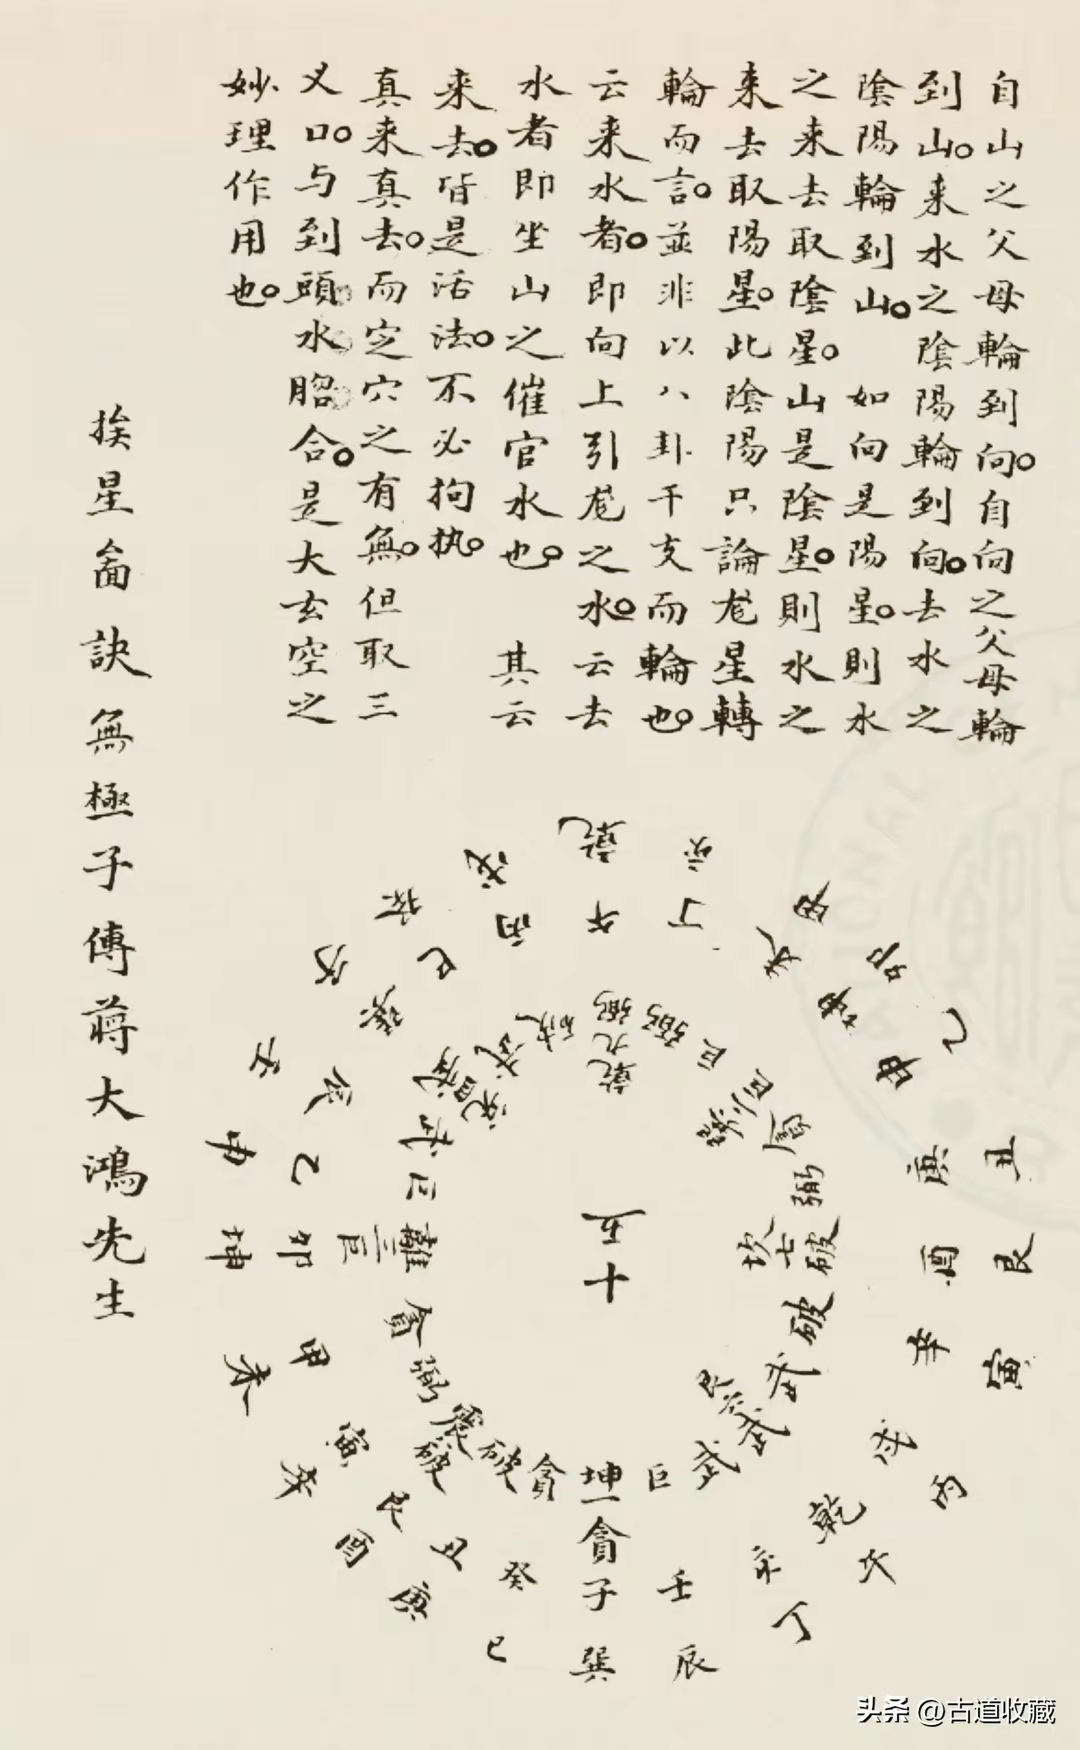 自山之父母輪到向。自向之父母輪
到山。来水之陰陽輪到向。去水之
陰陽輪到山。如向是陽星。則水
之来去取陰星。山是陰星。則水之
来去取陽星。此陰陽只論尨星轉
輪而言。並非以八卦干支而輪也。
云来水者。即向上引尨之水。云去
水者即坐山之催官水也。其云
来去。皆是活法。不必拘执。
真来真去。而定穴之有無。但取三
义口。与到頭。水脗合。是大玄空之
妙理作用也。
乾 亥 甲 卯 乙 丑 艮 寅 丙 午 丁 辰 巽 巳 庚 酉 辛 未 坤 申 壬 戌
午 丁 未 坤 申 庚 酉 辛 戌 乾 亥 壬 子 癸 丑 艮 寅 甲 卯 乙 辰 巽 巳 丙
乾九弼 弼 巨 巨 弼 坎七破 破 武 艮六武 武 巨 坤一貪 貪 破 震破 弼 貪 離三巨 巨 武 武 破
五十
挨星侖訣無極子傳蔣大鴻先生
头条 @古道收藏